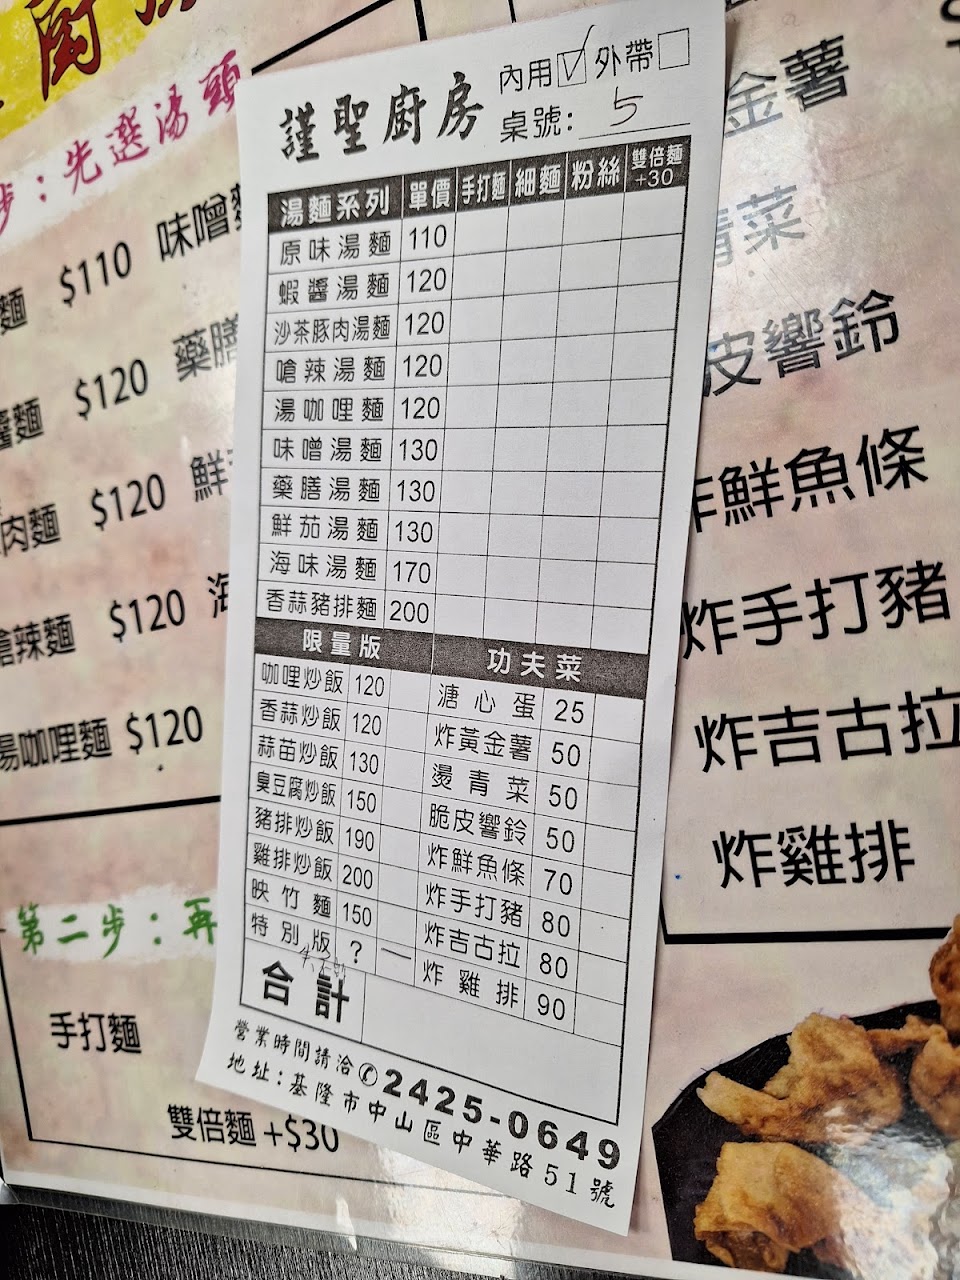 謹聖廚房
內用 外帶
桌號: 5
湯麵系列 單價 手打麵 細麵 粉絲 雙倍麵+30
原味湯麵 110
蝦醬湯麵 120
沙茶豚肉湯麵 120
嗆辣湯麵 120
湯咖哩麵 120
味噌湯麵 130
藥膳湯麵 130
鮮茄湯麵 130
海味湯麵 170
香蒜豬排麵 200
限量版
咖哩炒飯 120
香蒜炒飯 120
蒜苗炒飯 130
臭豆腐炒飯 150
豬排炒飯 190
雞排炒飯 200
映竹麵 150
特別版 ? 一
功夫菜
溏心蛋 25
炸黃金薯 50
燙青菜 50
脆皮響鈴 50
炸鮮魚條 70
炸手打豬 80
炸吉古拉 80
炸雞排 90
合計
營業時間請洽✆2425-0649
地址:基隆市中山區中華路51號
廚
步:先選湯頭
麵 $110 味噌
醬麵 $120 藥膳
肉麵 $120 鮮
嗆辣麵 $120 海
湯咖哩麵 $120
第二步:再
手打麵
雙倍麵+$30
金薯
青菜
皮響鈴
炸鮮魚條
炸手打豬
炸吉古拉
炸雞排